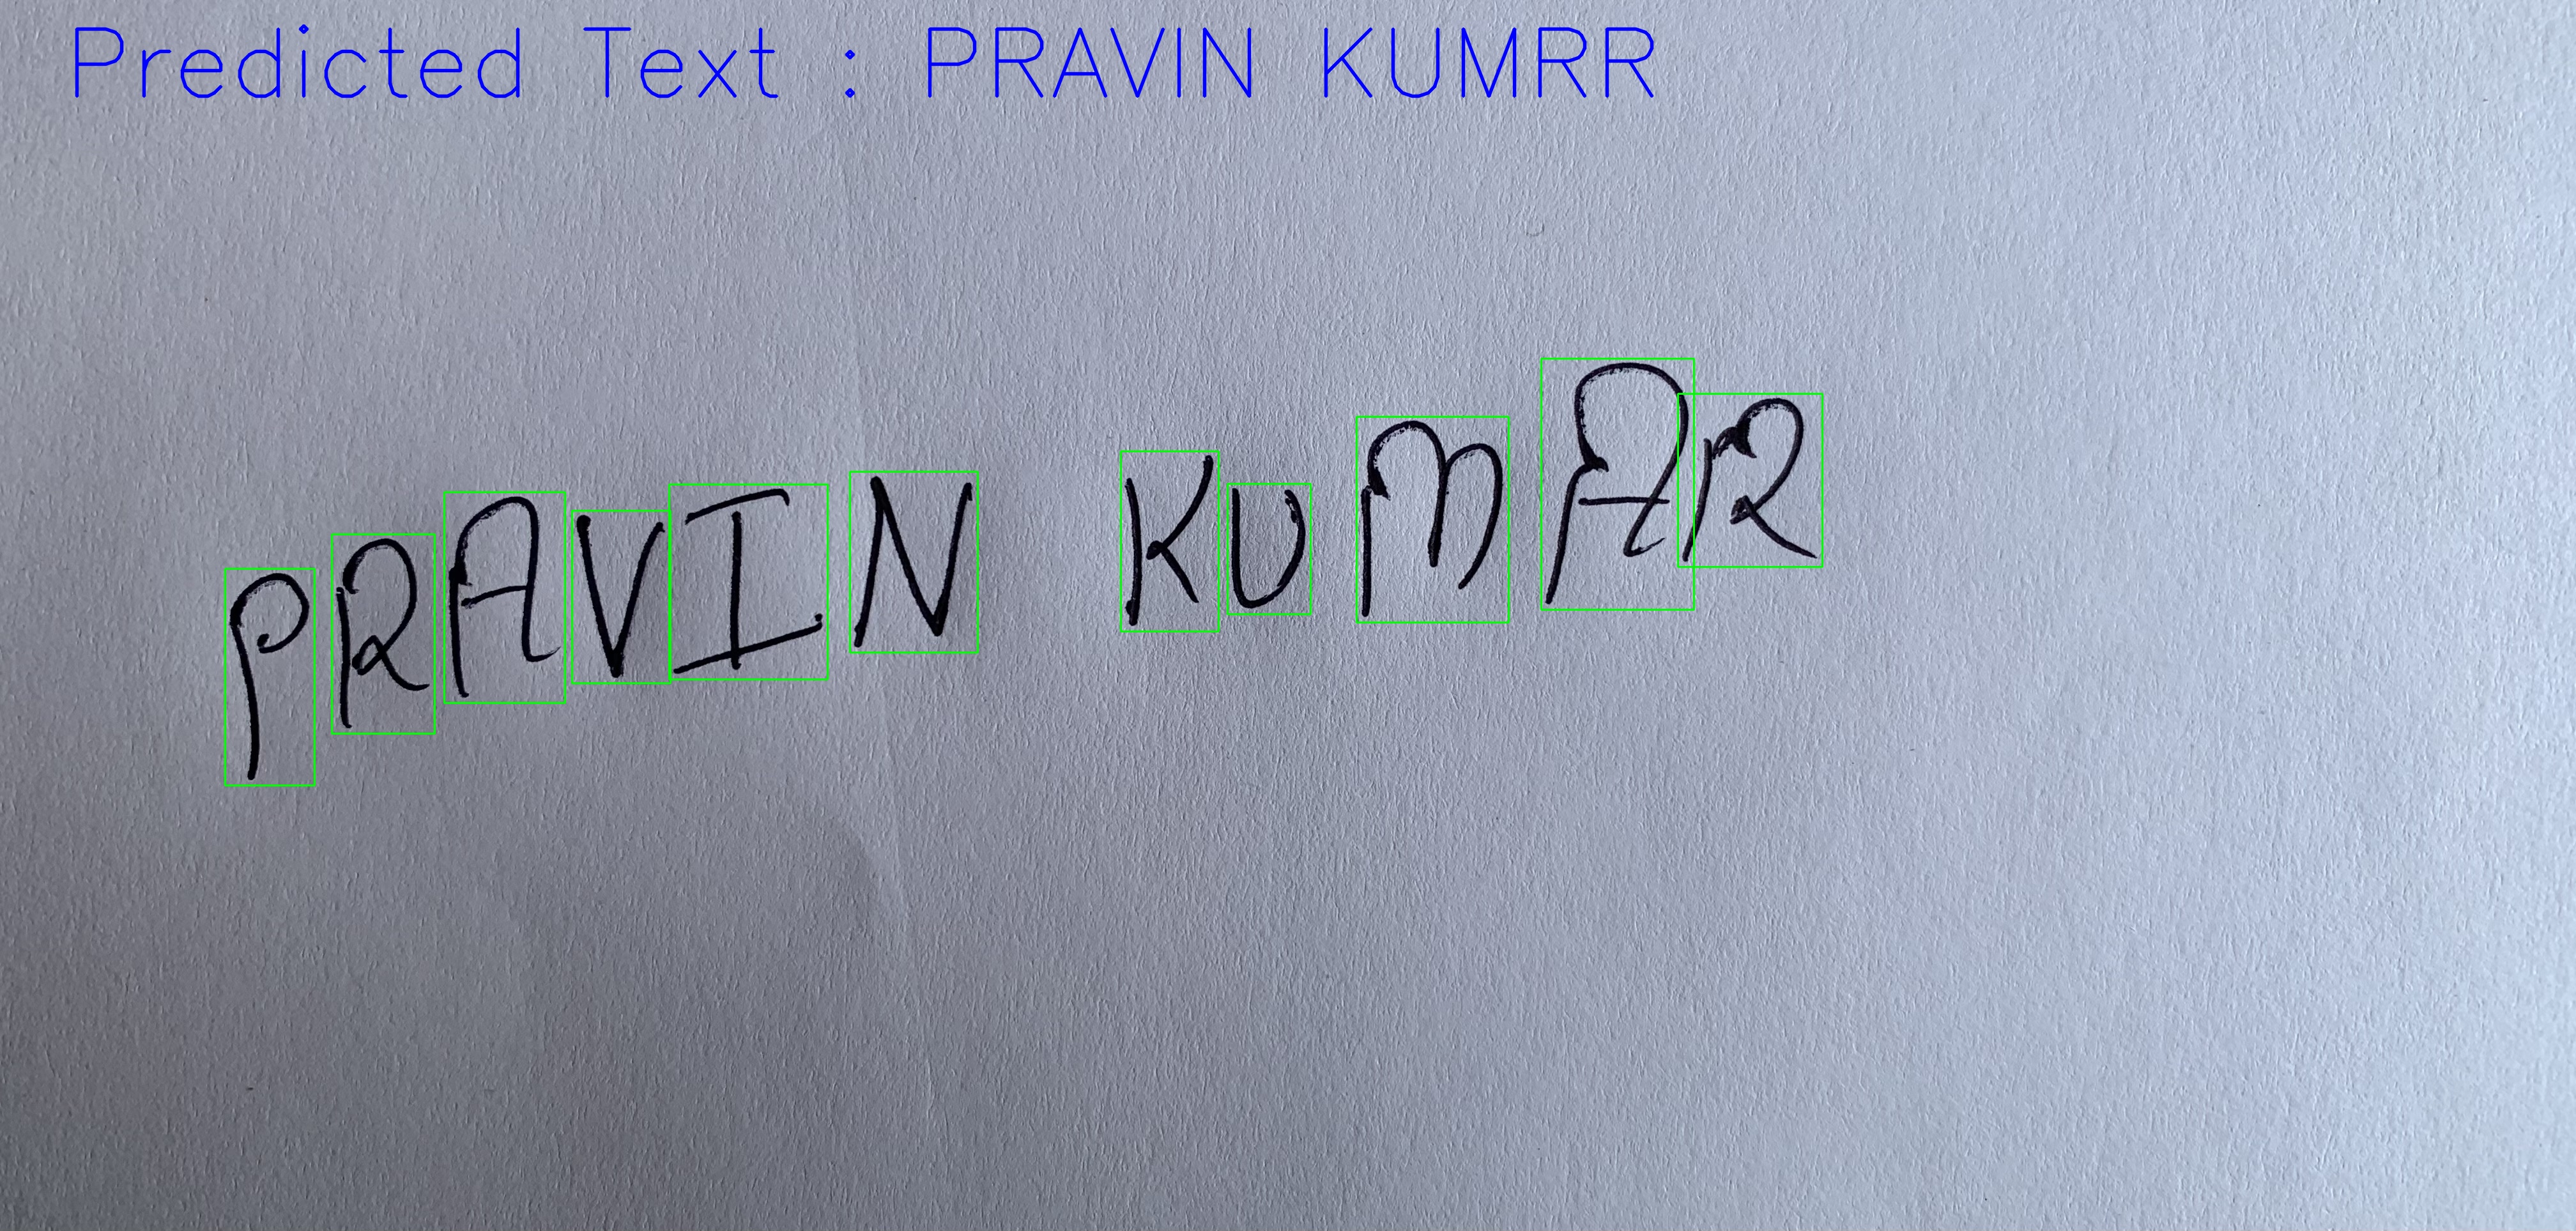 Predicted Text : PRAVIN KUMRR
PRAVIN KUMAR